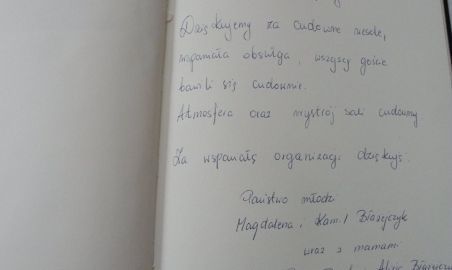 Dziękujemy za cudowne wesele,
wspaniała obsługa, wszyscy goście
bawili się cudownie.
Atmosfera oraz wystrój sali cudowny.
Za wspaniałą organizację dziękuję.
Państwo młodzi
Magdalena i Kamil Błażejczyk
wraz z mamami
Alicja